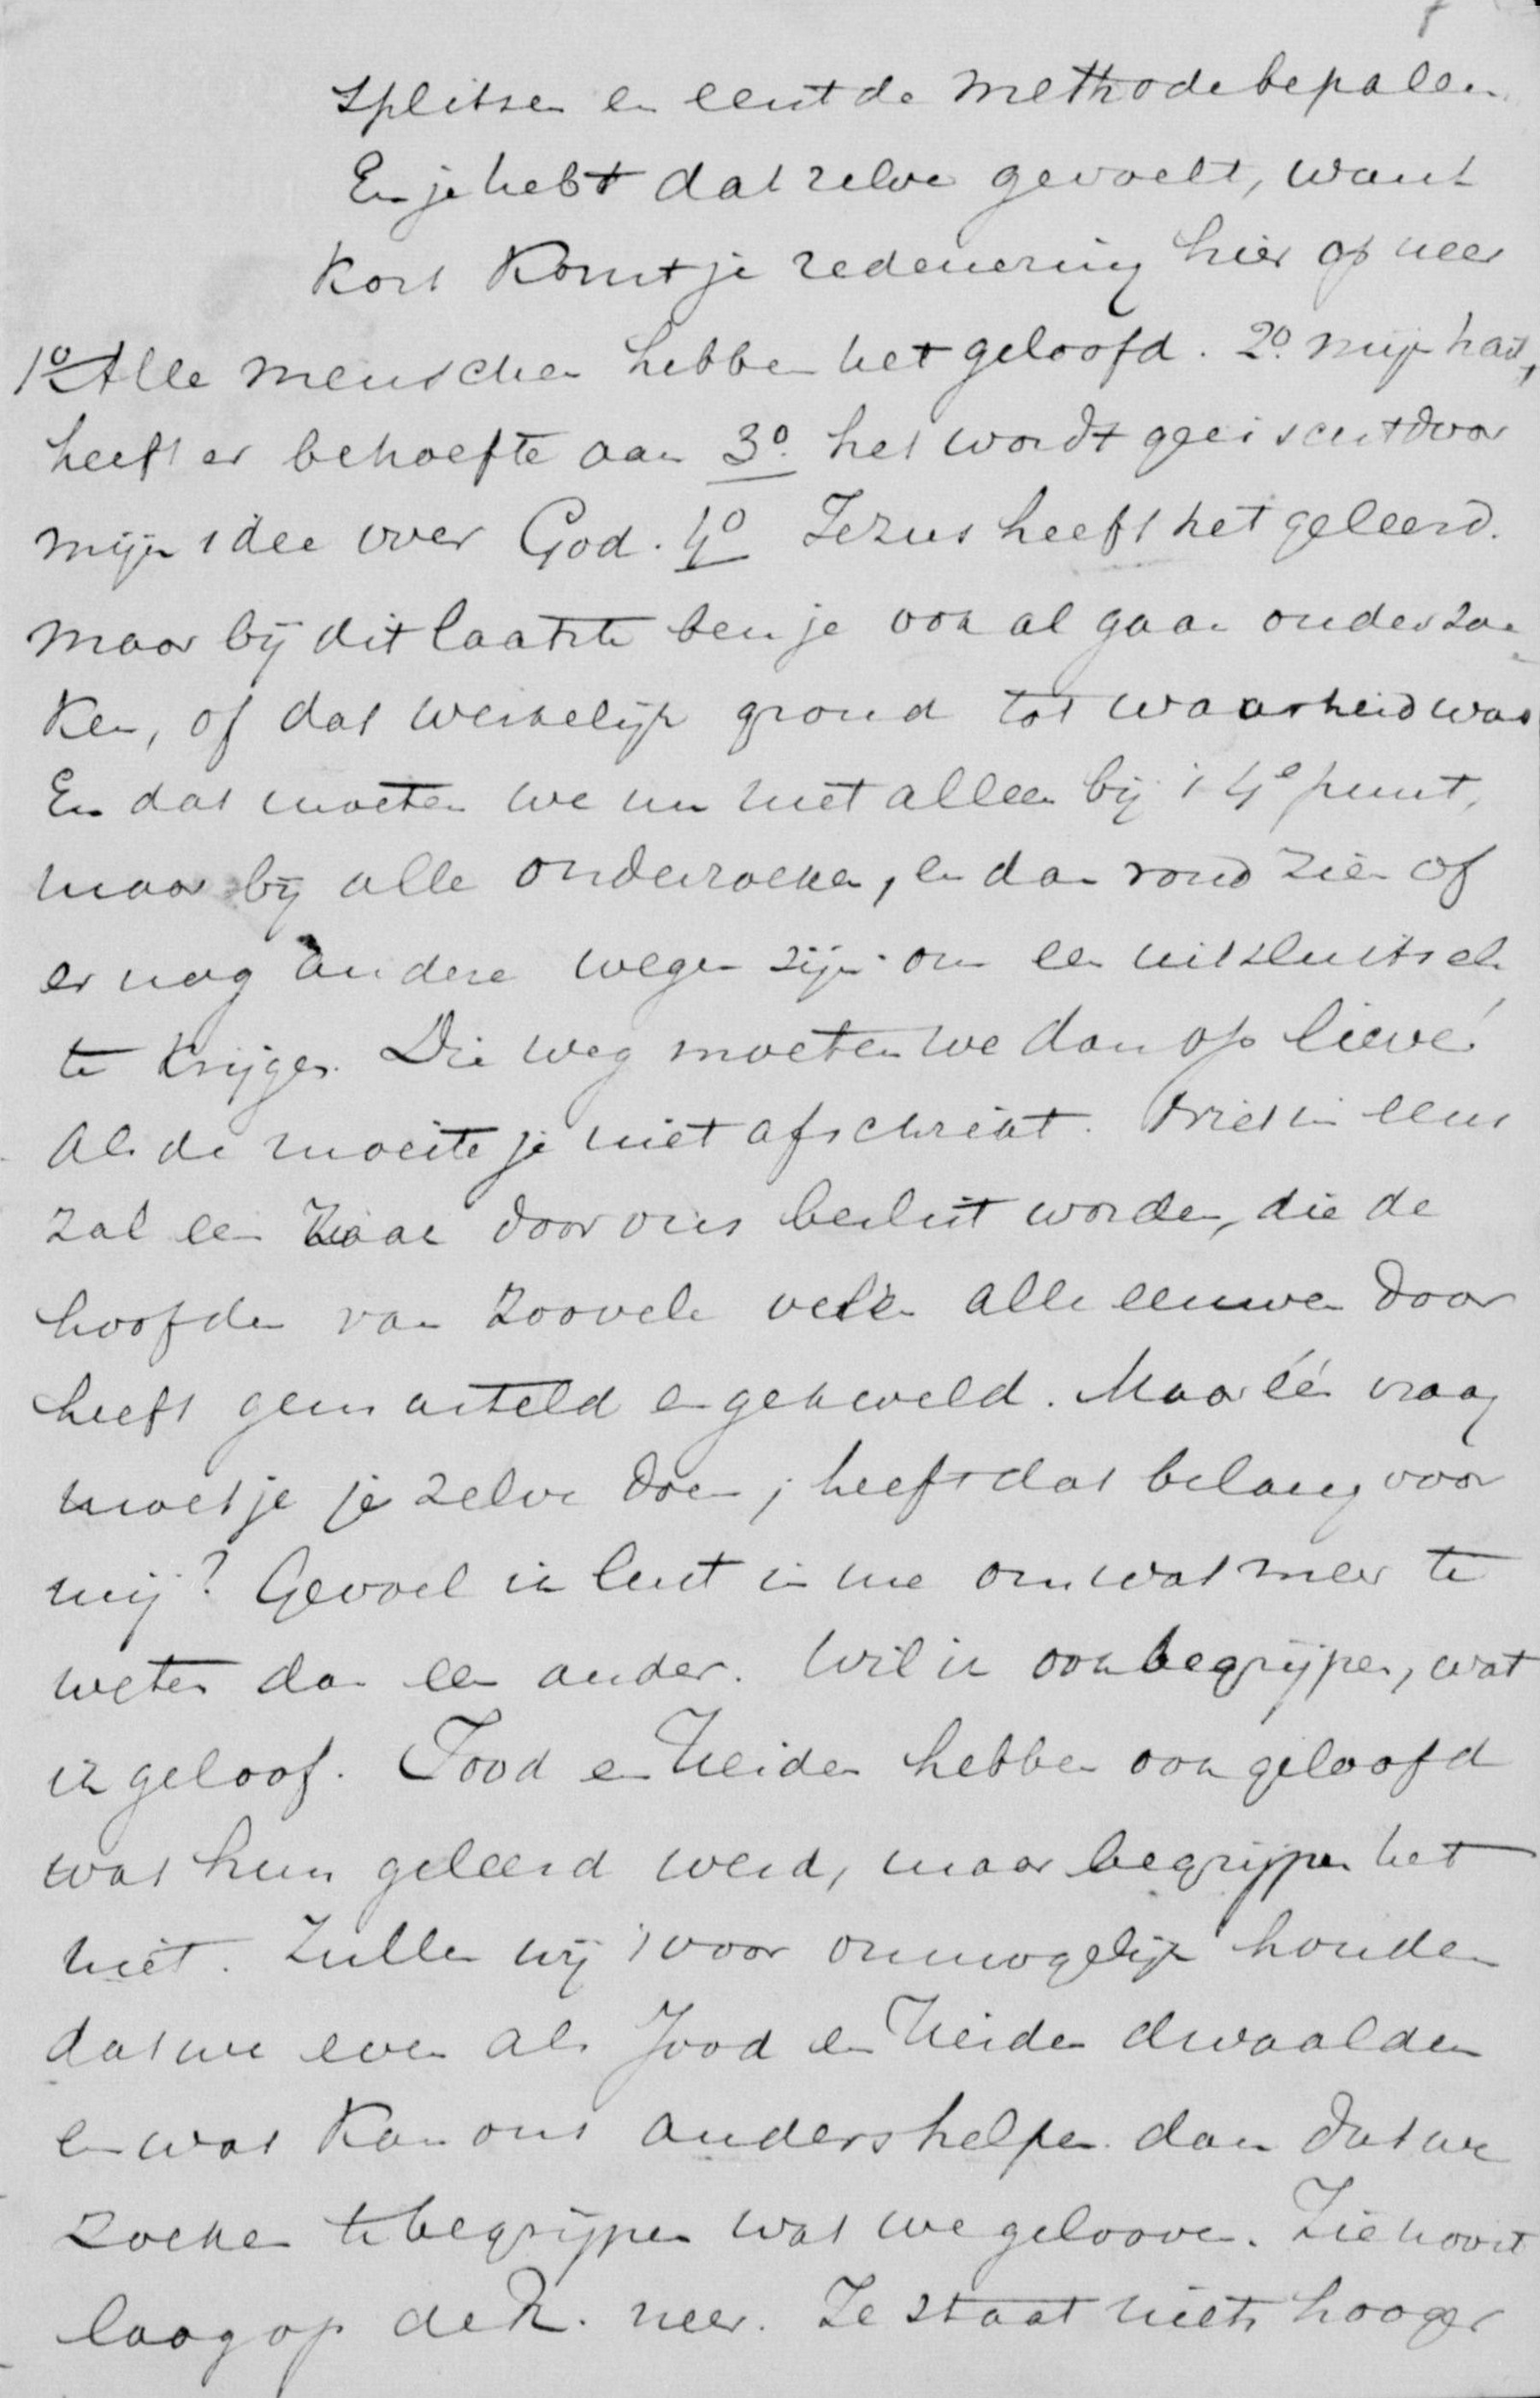 splitsen en eerst de methode bepalen.
En je hebt dat zelve gevoelt, want
Kort Komt je redenering hier op neer
1º Alle menschen hebben het geloofd. 2º. mijn hart,
heeft er behoefte aan 3º. het wordt geeischt door
mijn idee over God. 4º Jezus heeft het geleerd.
maar bij dit laatste ben je ook al gaan onderzoe
ken, of dat werkelijk grond tot waarheid was
En dat moeten we nu niet alleen bij 't 4e punt,
maar bij alle onderzoeken, en dan rond zien of
er nog andere wegen zijn om een uitsluitsel
te krijgen. Die weg moeten we dan op lieve!
Als de moeite je niet afschrikt. Niet in eens
zal een zaak door ons beslist worden, die de
hoofden van zoovele velen alle eeuwen door
heeft gemarteld en gekweld. Maar één vraag
moet je je zelve doen; heeft dat belang voor
mij? Gevoel ik lust in me om wat meer te
weten dan een ander. Wil ik ook begrijpen, wat
ik geloof. Jood en Heiden hebben ook geloofd
wat hun geleerd werd, maar begrijpen het
niet. Zullen wij 't voor onmogelijk houden
dat we even als Jood en Heiden dwaalden
en wat Kan ons anders helpen dan dat we
zoeken te begrijpen wat we gelooven. Zie nooit
laag op de R. neer. Ze staat niets hooger